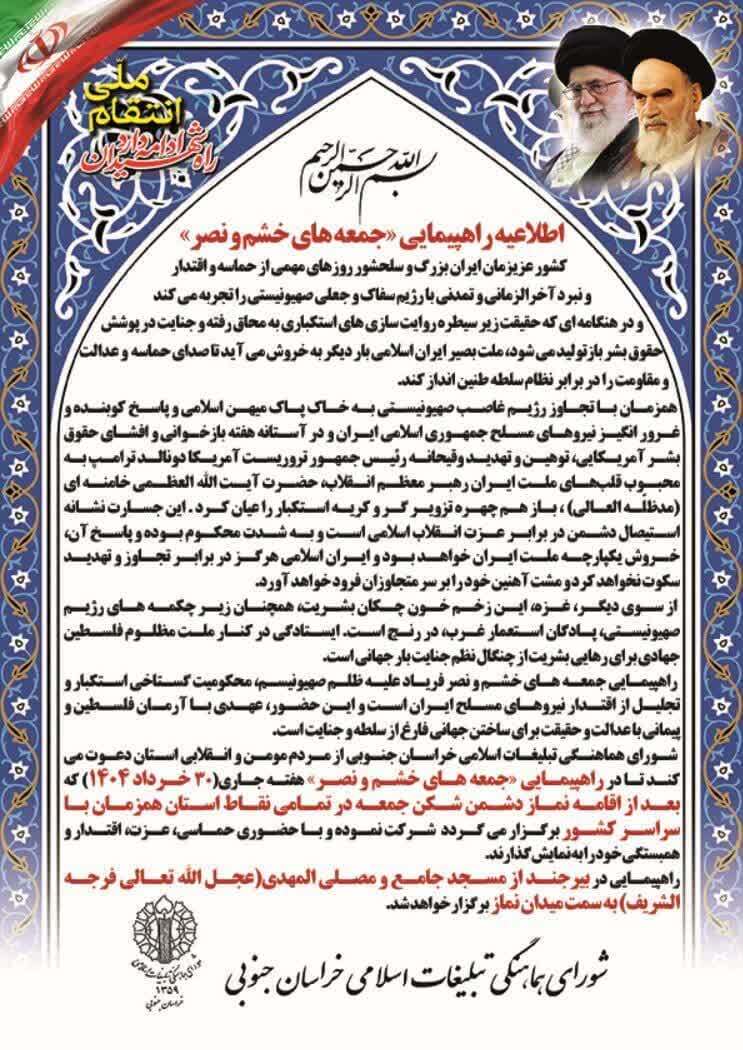 ملّی
انتقام
راه شهیدان ادامه دارد
بسم الله الرحمن الرحیم
اطلاعیه راهپیمایی «جمعه های خشم و نصر»
کشور عزیزمان ایران بزرگ و سلحشور روزهای مهمی از حماسه و اقتدار
و نبرد آخرالزمانی و تمدنی با رژیم سفاک و جعلی صهیونیستی را تجربه می کند
و در هنگامه ای که حقیقت زیر سیطره روایت سازی های استکباری به محاق رفته و جنایت در پوشش
حقوق بشر بازتولید می شود، ملت بصیر ایران اسلامی بار دیگر به خروش می آید تا صدای حماسه و عدالت
و مقاومت را در برابر نظام سلطه طنین انداز کند.
همزمان با تجاوز رژیم غاصب صهیونیستی به خاک پاک میهن اسلامی و پاسخ کوبنده و
غرور انگیز نیروهای مسلح جمهوری اسلامی ایران و در آستانه هفته بازخوانی و افشای حقوق
بشر آمریکایی، توهین و تهدید وقیحانه رئیس جمهور تروریست آمریکا دونالد ترامپ به
محبوب قلب‌های ملت ایران رهبر معظم انقلاب، حضرت آیت الله العظمی خامنه ای
(مدظلّه العالی) ، باز هم چهره تزویر گر و کریه استکبار را عیان کرد . این جسارت نشانه
استیصال دشمن در برابر عزت انقلاب اسلامی است و به شدت محکوم بوده و پاسخ آن،
خروش یکپارچه ملت ایران خواهد بود و ایران اسلامی هرگز در برابر تجاوز و تهدید
سکوت نخواهد کرد و مشت آهنین خود را بر سر متجاوزان فرود خواهد آورد.
از سوی دیگر، غزه، این زخم خون چکان بشریت، همچنان زیر چکمه های رژیم
صهیونیستی، پادگان استعمار غرب، در رنج است. ایستادگی در کنار ملت مظلوم فلسطین
جهادی برای رهایی بشریت از چنگال نظم جنایت بار جهانی است.
راهپیمایی جمعه های خشم و نصر فریاد علیه ظلم صهیونیسم، محکومیت گستاخی استکبار و
تجلیل از اقتدار نیروهای مسلح ایران است و این حضور، عهدی با آرمان فلسطین و
پیمانی با عدالت و حقیقت برای ساختن جهانی فارغ از سلطه و جنایت است.
شورای هماهنگی تبلیغات اسلامی خراسان جنوبی از مردم مومن و انقلابی استان دعوت می
کند تا در راهپیمایی «جمعه های خشم و نصر» هفته جاری(۳۰ خرداد ۱۴۰۴) که
بعد از اقامه نماز دشمن شکن جمعه در تمامی نقاط استان همزمان با
سراسر کشور برگزار می گردد شرکت نموده و با حضوری حماسی، عزت، اقتدار و
همبستگی خود را به نمایش گذارند.
راهپیمایی در بیرجند از مسجد جامع و مصلی المهدی(عجل الله تعالی فرجه
الشریف) به سمت میدان نماز برگزار خواهد شد.
شورای هماهنگی تبلیغات اسلامی خراسان جنوبی
شورای هماهنگی تبلیغات اسلامی
۱۳۵۹
خراسان جنوبی